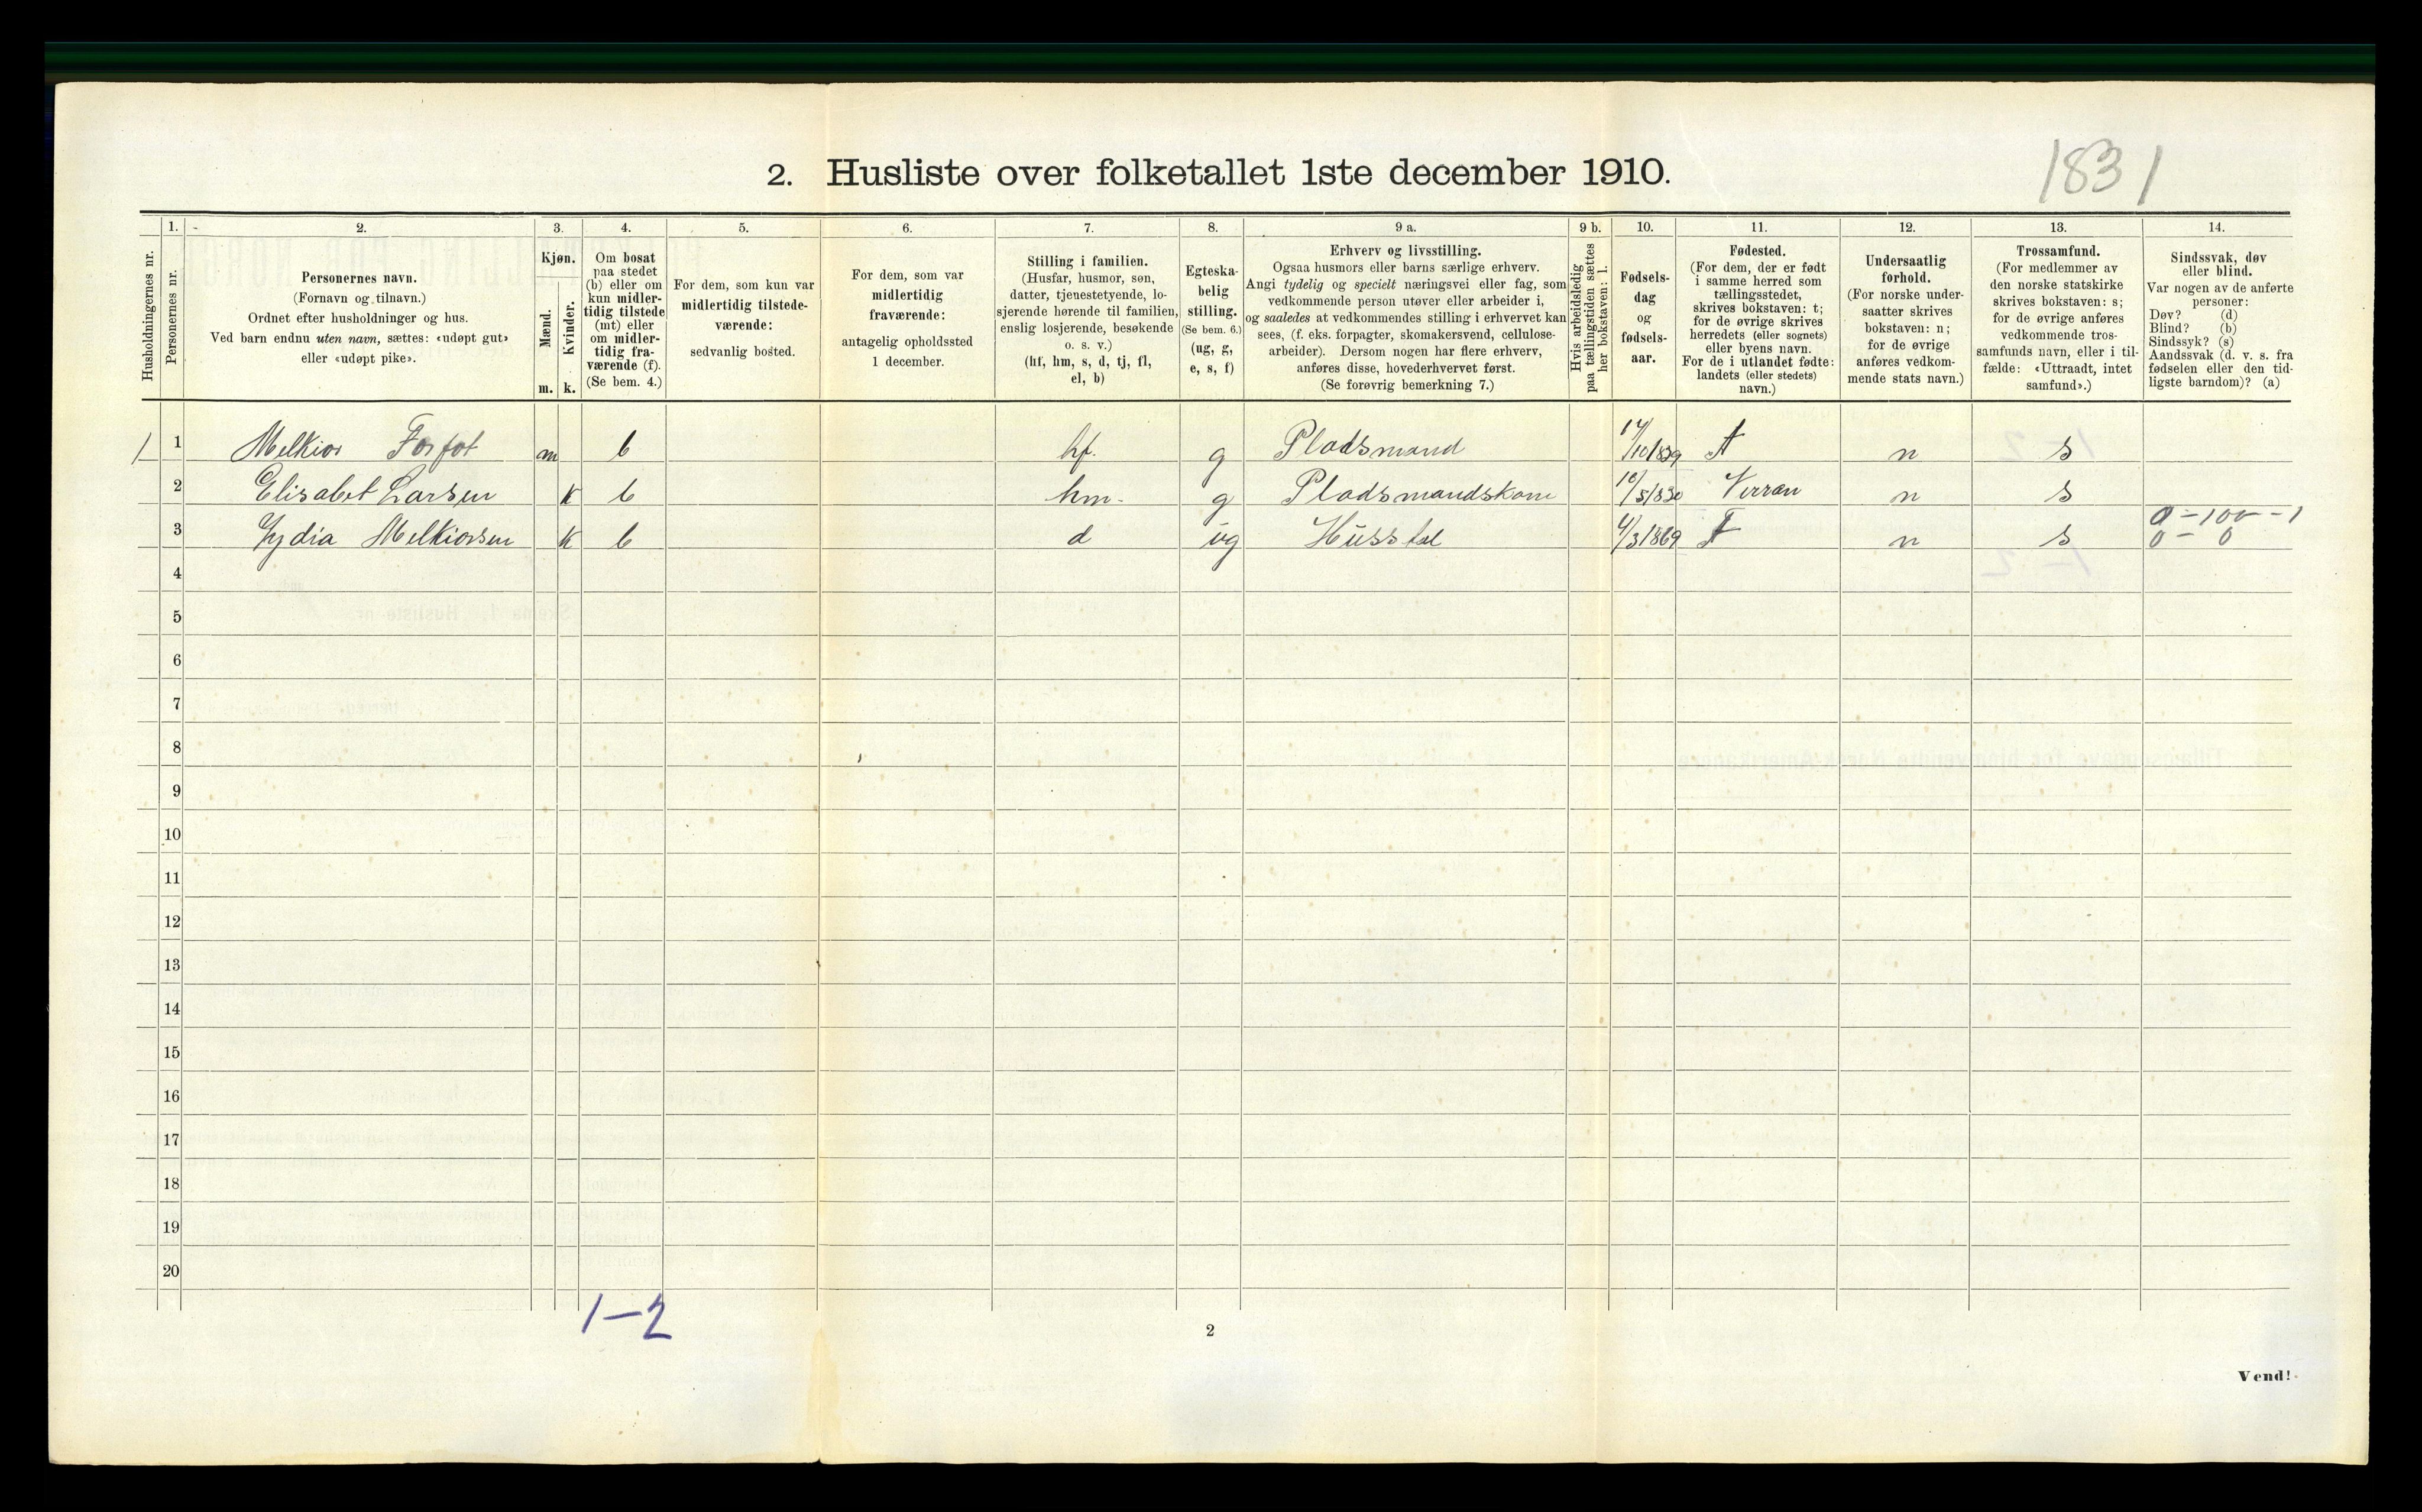 2. Husliste over folketallet 1ste december 1910.
1831
Husholdningernes nr.
1.
Personernes nr.
2.
Personernes navn.
(Fornavn og tilnavn.)
Ordnet efter husholdninger og hus.
Ved barn endnu uten navn, sættes: «udøpt gut»
eller «udøpt pike».
3.
Kjøn.
Mænd.
Kvinder.
m. k.
4.
Om bosat
paa stedet
(b) eller om
kun midler-
tidig tilstede
(mt) eller
om midler-
tidig fra-
værende (f).
(Se bem. 4.)
5.
For dem, som kun var
midlertidig tilstede-
værende:
sedvanlig bosted.
6.
For dem, som var
midlertidig
fraværende:
antagelig opholdssted
1 december.
7.
Stilling i familien.
(Husfar, husmor, søn,
datter, tjenestetyende, lo-
sjerende hørende til familien,
enslig losjerende, besøkende
o. s. v.)
(hf, hm, s, d, tj, fl,
el, b)
8.
Egteska-
belig
stilling.
(Se bem. 6.)
(ug, g,
e, s, f)
9 a.
Erhverv og livsstilling.
Ogsaa husmors eller barns særlige erhverv.
Angi tydelig og specielt næringsvei eller fag, som
vedkommende person utøver eller arbeider i,
og saaledes at vedkommendes stilling i erhvervet kan
sees, (f. eks. forpagter, skomakersvend, cellulose-
arbeider). Dersom nogen har flere erhverv,
anføres disse, hovederhvervet først.
(Se forøvrig bemerkning 7.)
9 b.
Hvis arbeidsledig
paa tællingstiden sættes
her bokstaven: l.
10.
Fødsels-
dag
og
fødsels-
aar.
11.
Fødested.
(For dem, der er født
i samme herred som
tællingsstedet,
skrives bokstaven: t;
for de øvrige skrives
herredets (eller sognets)
eller byens navn.
For de i utlandet fødte:
landets (eller stedets)
navn.)
12.
Undersaatlig
forhold.
(For norske under-
saatter skrives
bokstaven: n;
for de øvrige
anføres vedkom-
mende stats navn.)
13.
Trossamfund.
(For medlemmer av
den norske statskirke
skrives bokstaven: s;
for de øvrige anføres
vedkommende tros-
samfunds navn, eller i til-
fælde: «Uttraadt, intet
samfund».)
14.
Sindssvak, døv
eller blind.
Var nogen av de anførte
personer:
Døv? (d)
Blind? (b)
Sindssyk? (s)
Aandssvak (d. v. s. fra
fødselen eller den tid-
ligste barndom)? (a)
1 1 Melkior Forfot m b hf. g Pladsmand 17/10 1839 t n s
2 Elisabet Larsen k b hm. g Pladsmandskone 5/1830 Verran n s
3 Lydia Melkiorsen k b d ug Husstel 4/3 1869 n s 0-100-1
0 - 0
4
5
6
7
8
9
10
11
12
13
14
15
16
17
18
19
20
1-2
2
Vend!